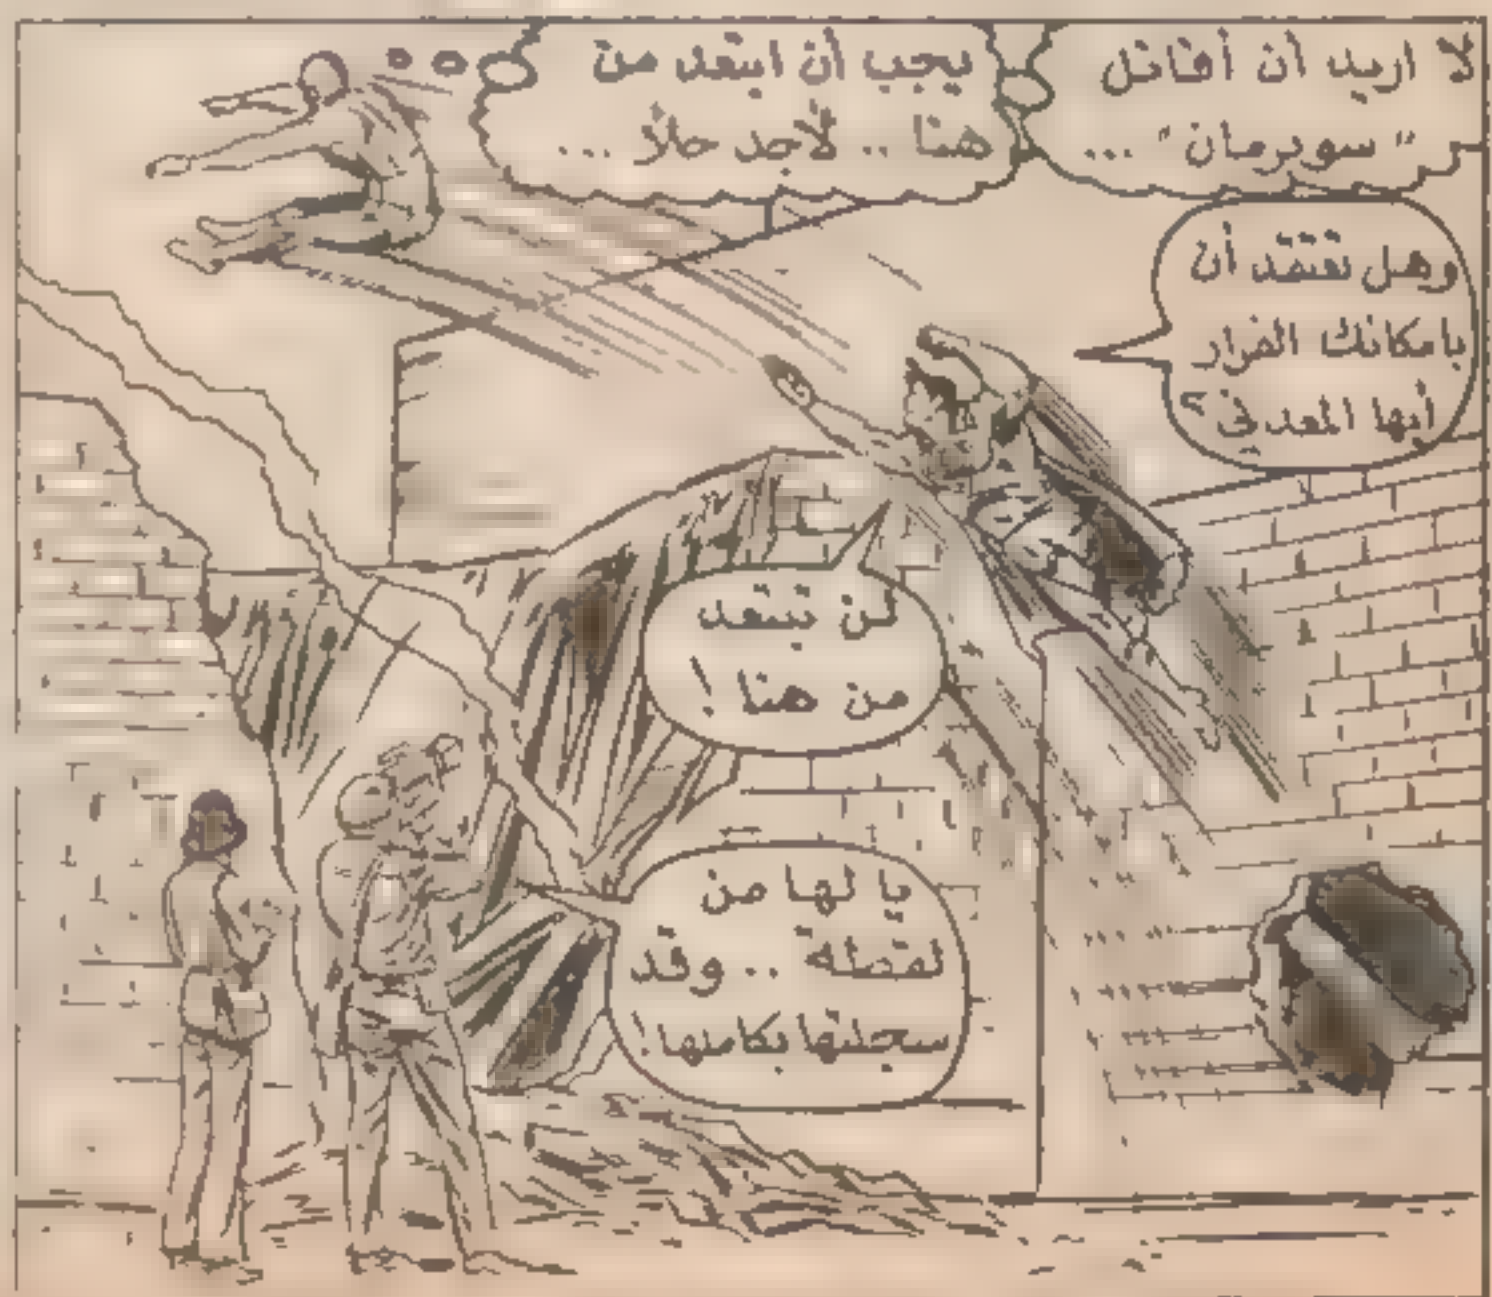 لا اريد أن أقاتل
"سوبرمان" ...
يجب أن ابتعد من
هنا .. لأجد حلاً ...
وهل تعتقد أن
بامكانك الفرار
أيها المعدني ؟
لن تبتعد
من هنا !
يا لها من
لقطة .. وقد
سجلتها بكاملها !